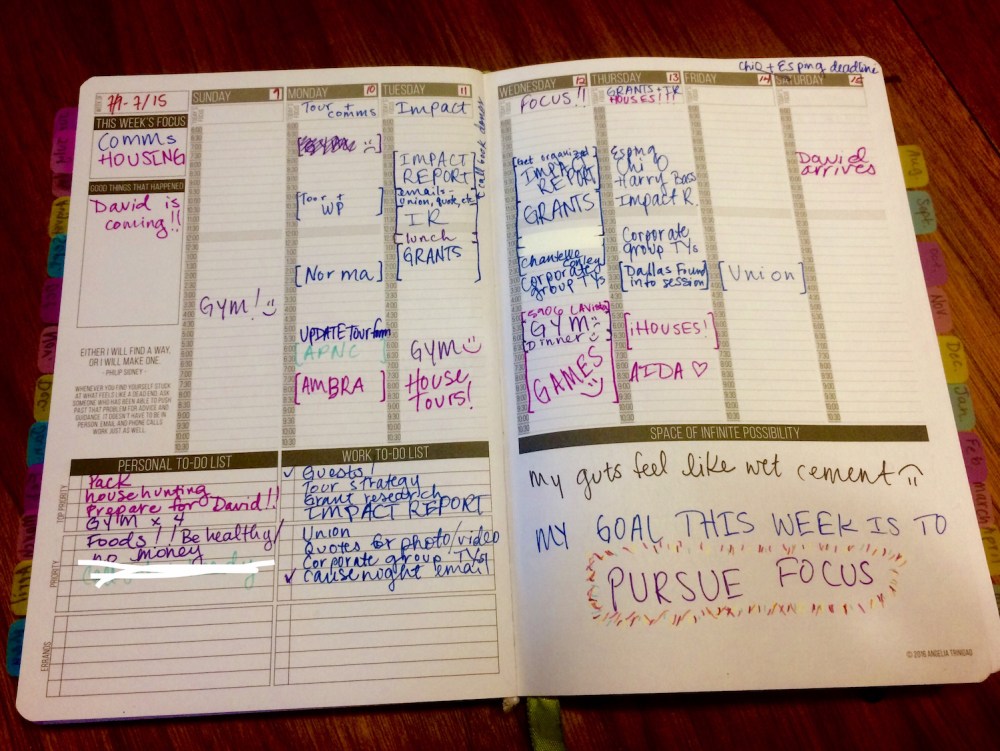 7/9-7/15
THIS WEEK'S FOCUS
COMMS
HOUSING
GOOD THINGS THAT HAPPENED
David is
coming!!
EITHER I WILL FIND A WAY,
OR I WILL MAKE ONE.
- PHILIP SIDNEY -
WHENEVER YOU FIND YOURSELF STUCK
AT WHAT FEELS LIKE A DEAD END, ASK
SOMEONE WHO HAS BEEN ABLE TO PUSH
PAST THAT PROBLEM FOR ADVICE AND
GUIDANCE. IT DOESN'T HAVE TO BE IN
PERSON. EMAIL AND PHONE CALLS
WORK JUST AS WELL.
SUNDAY 9
GYM!
MONDAY 10
Tour +
comms
[Tour +
WP]
[Norma]
UPDATE Tour form
APNC
[AMBRA]
TUESDAY 11
Impact
[IMPACT
REPORT]
emails-
union, quote, etc
+ call back donor
IR
lunch
GRANTS
GYM
House
Tours!
PERSONAL TO-DO LIST
TOP PRIORITY
Pack
househunting
Prepare for David!!
GYM x 4
PRIORITY
Foods!! Be healthy/
no money
ERRANDS
WORK TO-DO LIST
✓ Guests!
Tour strategy
Grant research
IMPACT REPORT
Union
Quotes for photo/video
Corporate group TYs!
✓ Causenight email
WEDNESDAY 12
FOCUS!!
[Get organized]
IMPACT
REPORT
GRANTS
Chantelle
Conley
Corporate
group TYs
5906 LaVista
GYM
Dinner
GAMES
THURSDAY 13
GRANTS + IR
HOUSES!!!
Espma
Chi O
Harry Bass
Impact R.
Corporate
group TYs
[Dallas Found
info session]
[¡HOUSES!]
AIDA ♡
FRIDAY 14
[Union]
Chi O + Espma deadline
SATURDAY 15
David
arrives
SPACE OF INFINITE POSSIBILITY
my guts feel like wet cement
MY GOAL THIS WEEK IS TO
PURSUE FOCUS
© 2016 ANGELIA TRINIDAD